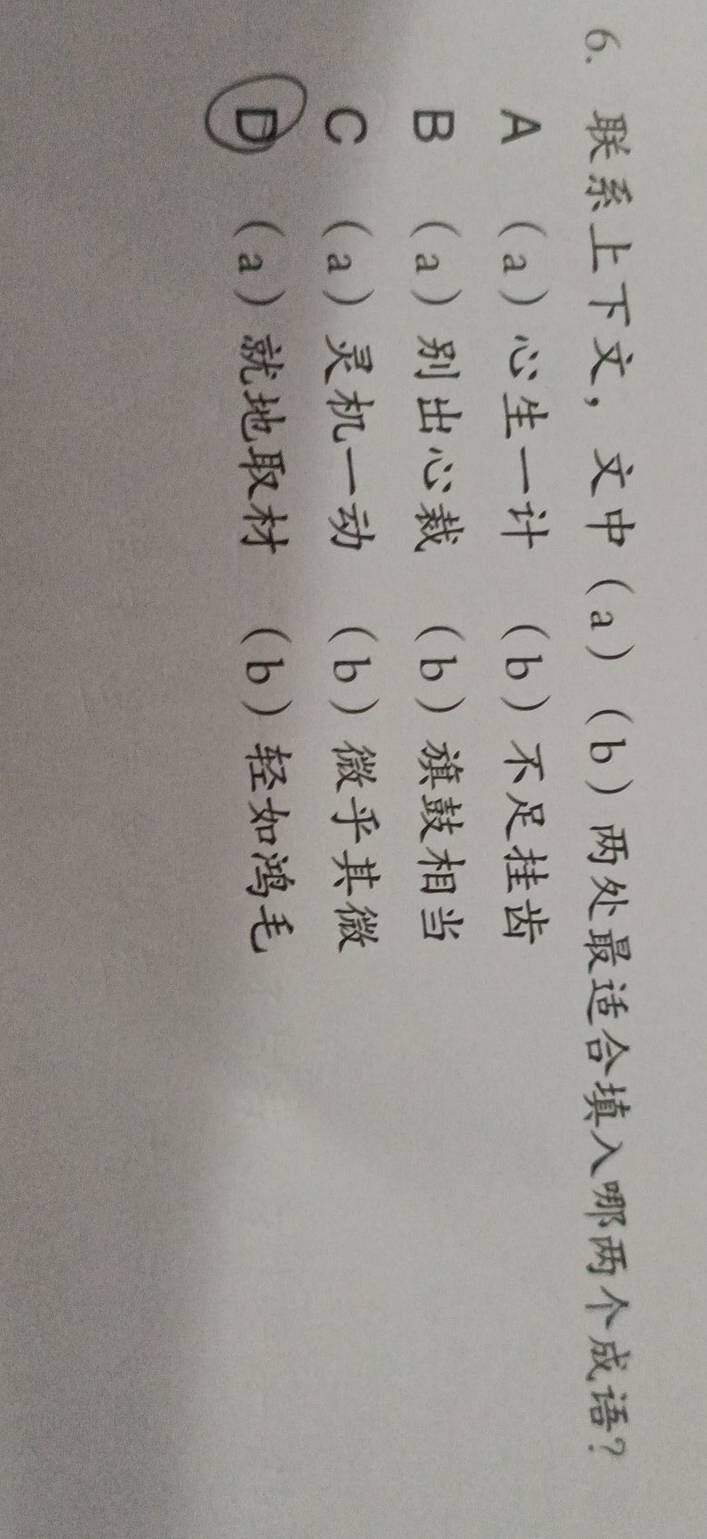 6. 联系上下文，文中（a）（b）两处最适合填入哪两个成语？
A （a）心生一计 （b）不足挂齿
B （a）别出心裁 （b）旗鼓相当
C （a）灵机一动 （b）微乎其微
D （a）就地取材 （b）轻如鸿毛